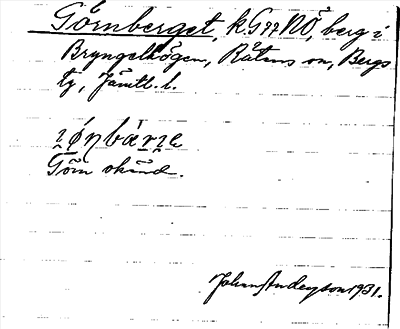 Görnberget, k. G 77 NÖ, berg i
Bryngelhögen, Rätans sn, Bergs
tg, Jämtl. l.
Görn okänd.
Johan Anderson 1931.